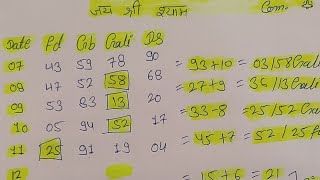 जय श्री श्याम Com.
Date Fd Gb Gali DS
07 43 59 78 90 = 93+10 = 03/58 Gali
08 47 52 58 68 = 27+9 = 36/13 Gali
09 53 83 13 20 = 33-8 = 25/52 Gali
10 05 94 52 17 = 45+7 = 52/25
11 25 91 19 04
12 = 15+6 = 21